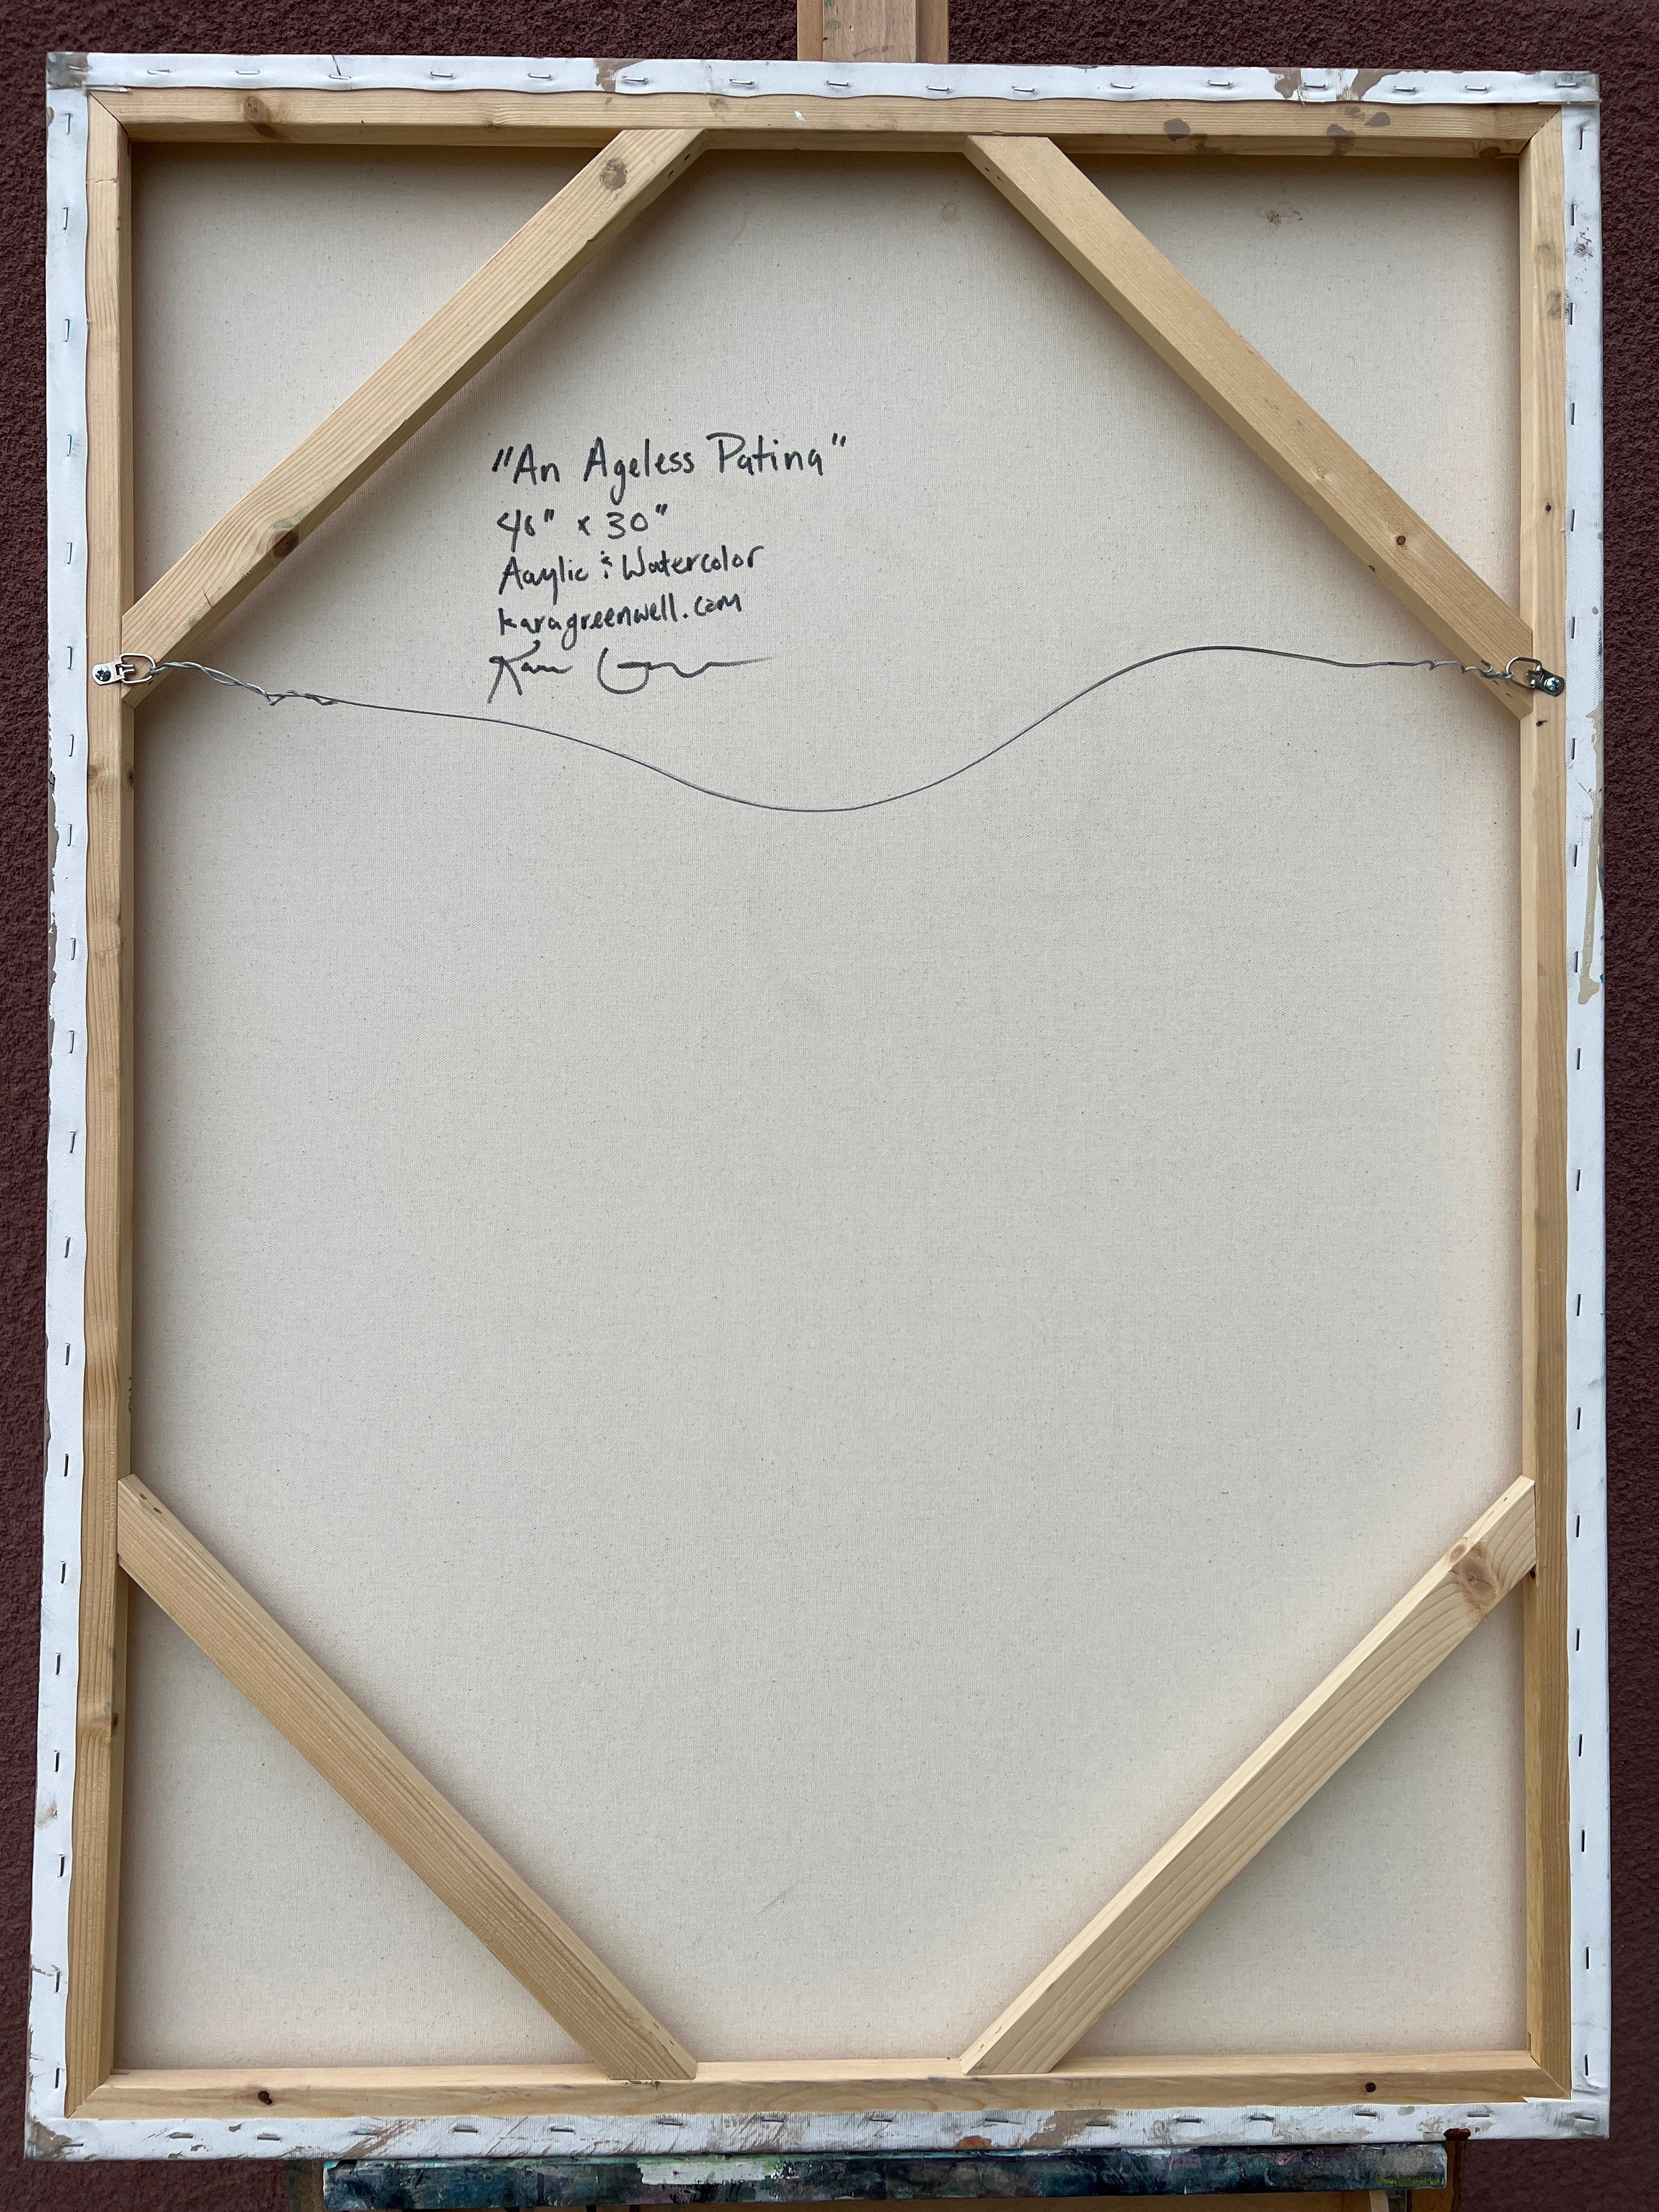 "An Ageless Patina"
40" x 30"
Acrylic & Watercolor
karagreenwell.com
Kara